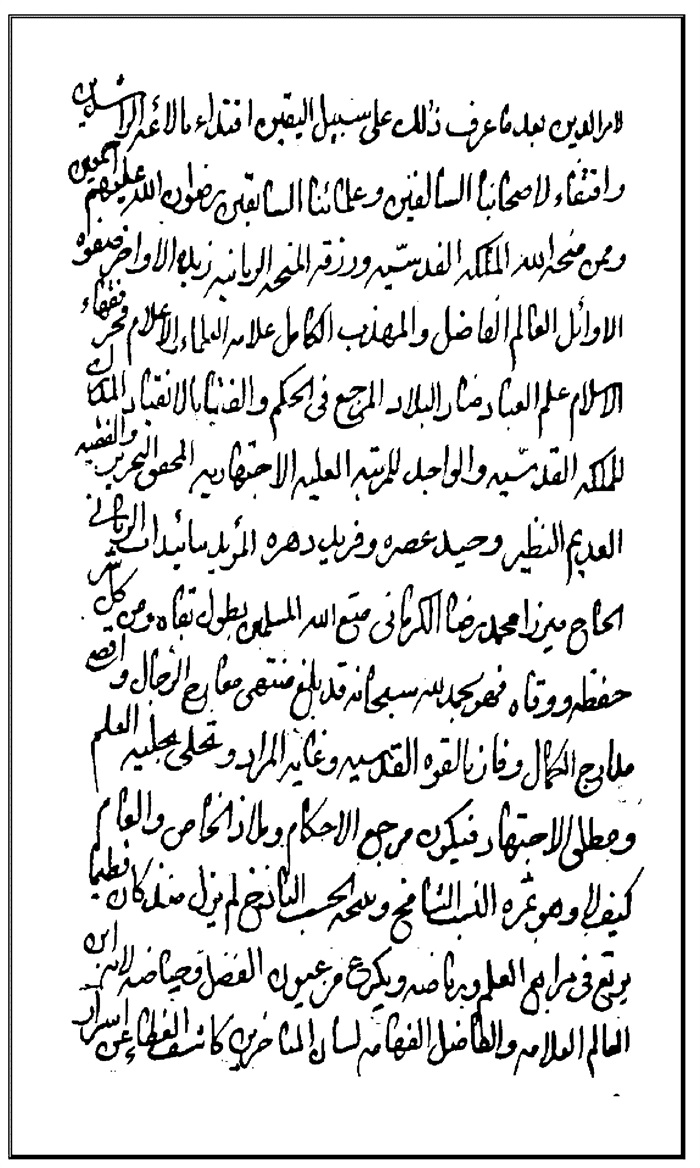 لامر الدين بعد ما عرف ذلك على سبيل اليقين اقتداء بالأئمه الراشدين
واقتفاء لاصحابنا السالفين وعلمائنا السابقين رضوان الله عليهم اجمعين
وممن منحه الله الملكه القدسيه ورزقه المنحه الربانيه زبدة الاواخر صفوه
الاوائل العالم الفاضل والمهذب الكامل علامه العلماء الاعلام فخر فقهاء
الاسلام علم العباد منار البلاد المرجع في الحكم والفتيا بالانقياد المالك
للملكه القدسيه والواجد للمرتبه العليه الاجتهاديه المحقق النحرير والفقيه
العديم النظير وحيد عصره وفريد دهره المؤيد بتائيدات الرباني
الحاج ميرزا محمد رضا الكرماني متع الله المسلمين بطول بقاه ومن كل شر
حفظه ووقاه فهو بحمد لله سبحانه قد بلغ منتهى معارج الرجال واقصى
مدارج الكمال وفاز بالقوه القدسيه وغايه المراد وتحلى بحليه العلم
وحلى الاجتهاد فيكون مرجع الاحكام وملاذ الخاص والعام
كيف لا وهو ثمره النسب الشامخ ونتيجه الحسب الباذخ لم يزل منذ كان فطيما
يرتع في مراتع العلم ورياضه ويكرع من عيون الفضل وحياضه لانه ابن
العالم العلامه والفاضل الفهامه لسان المتاخرين كاشف الغطاء عن اسرار